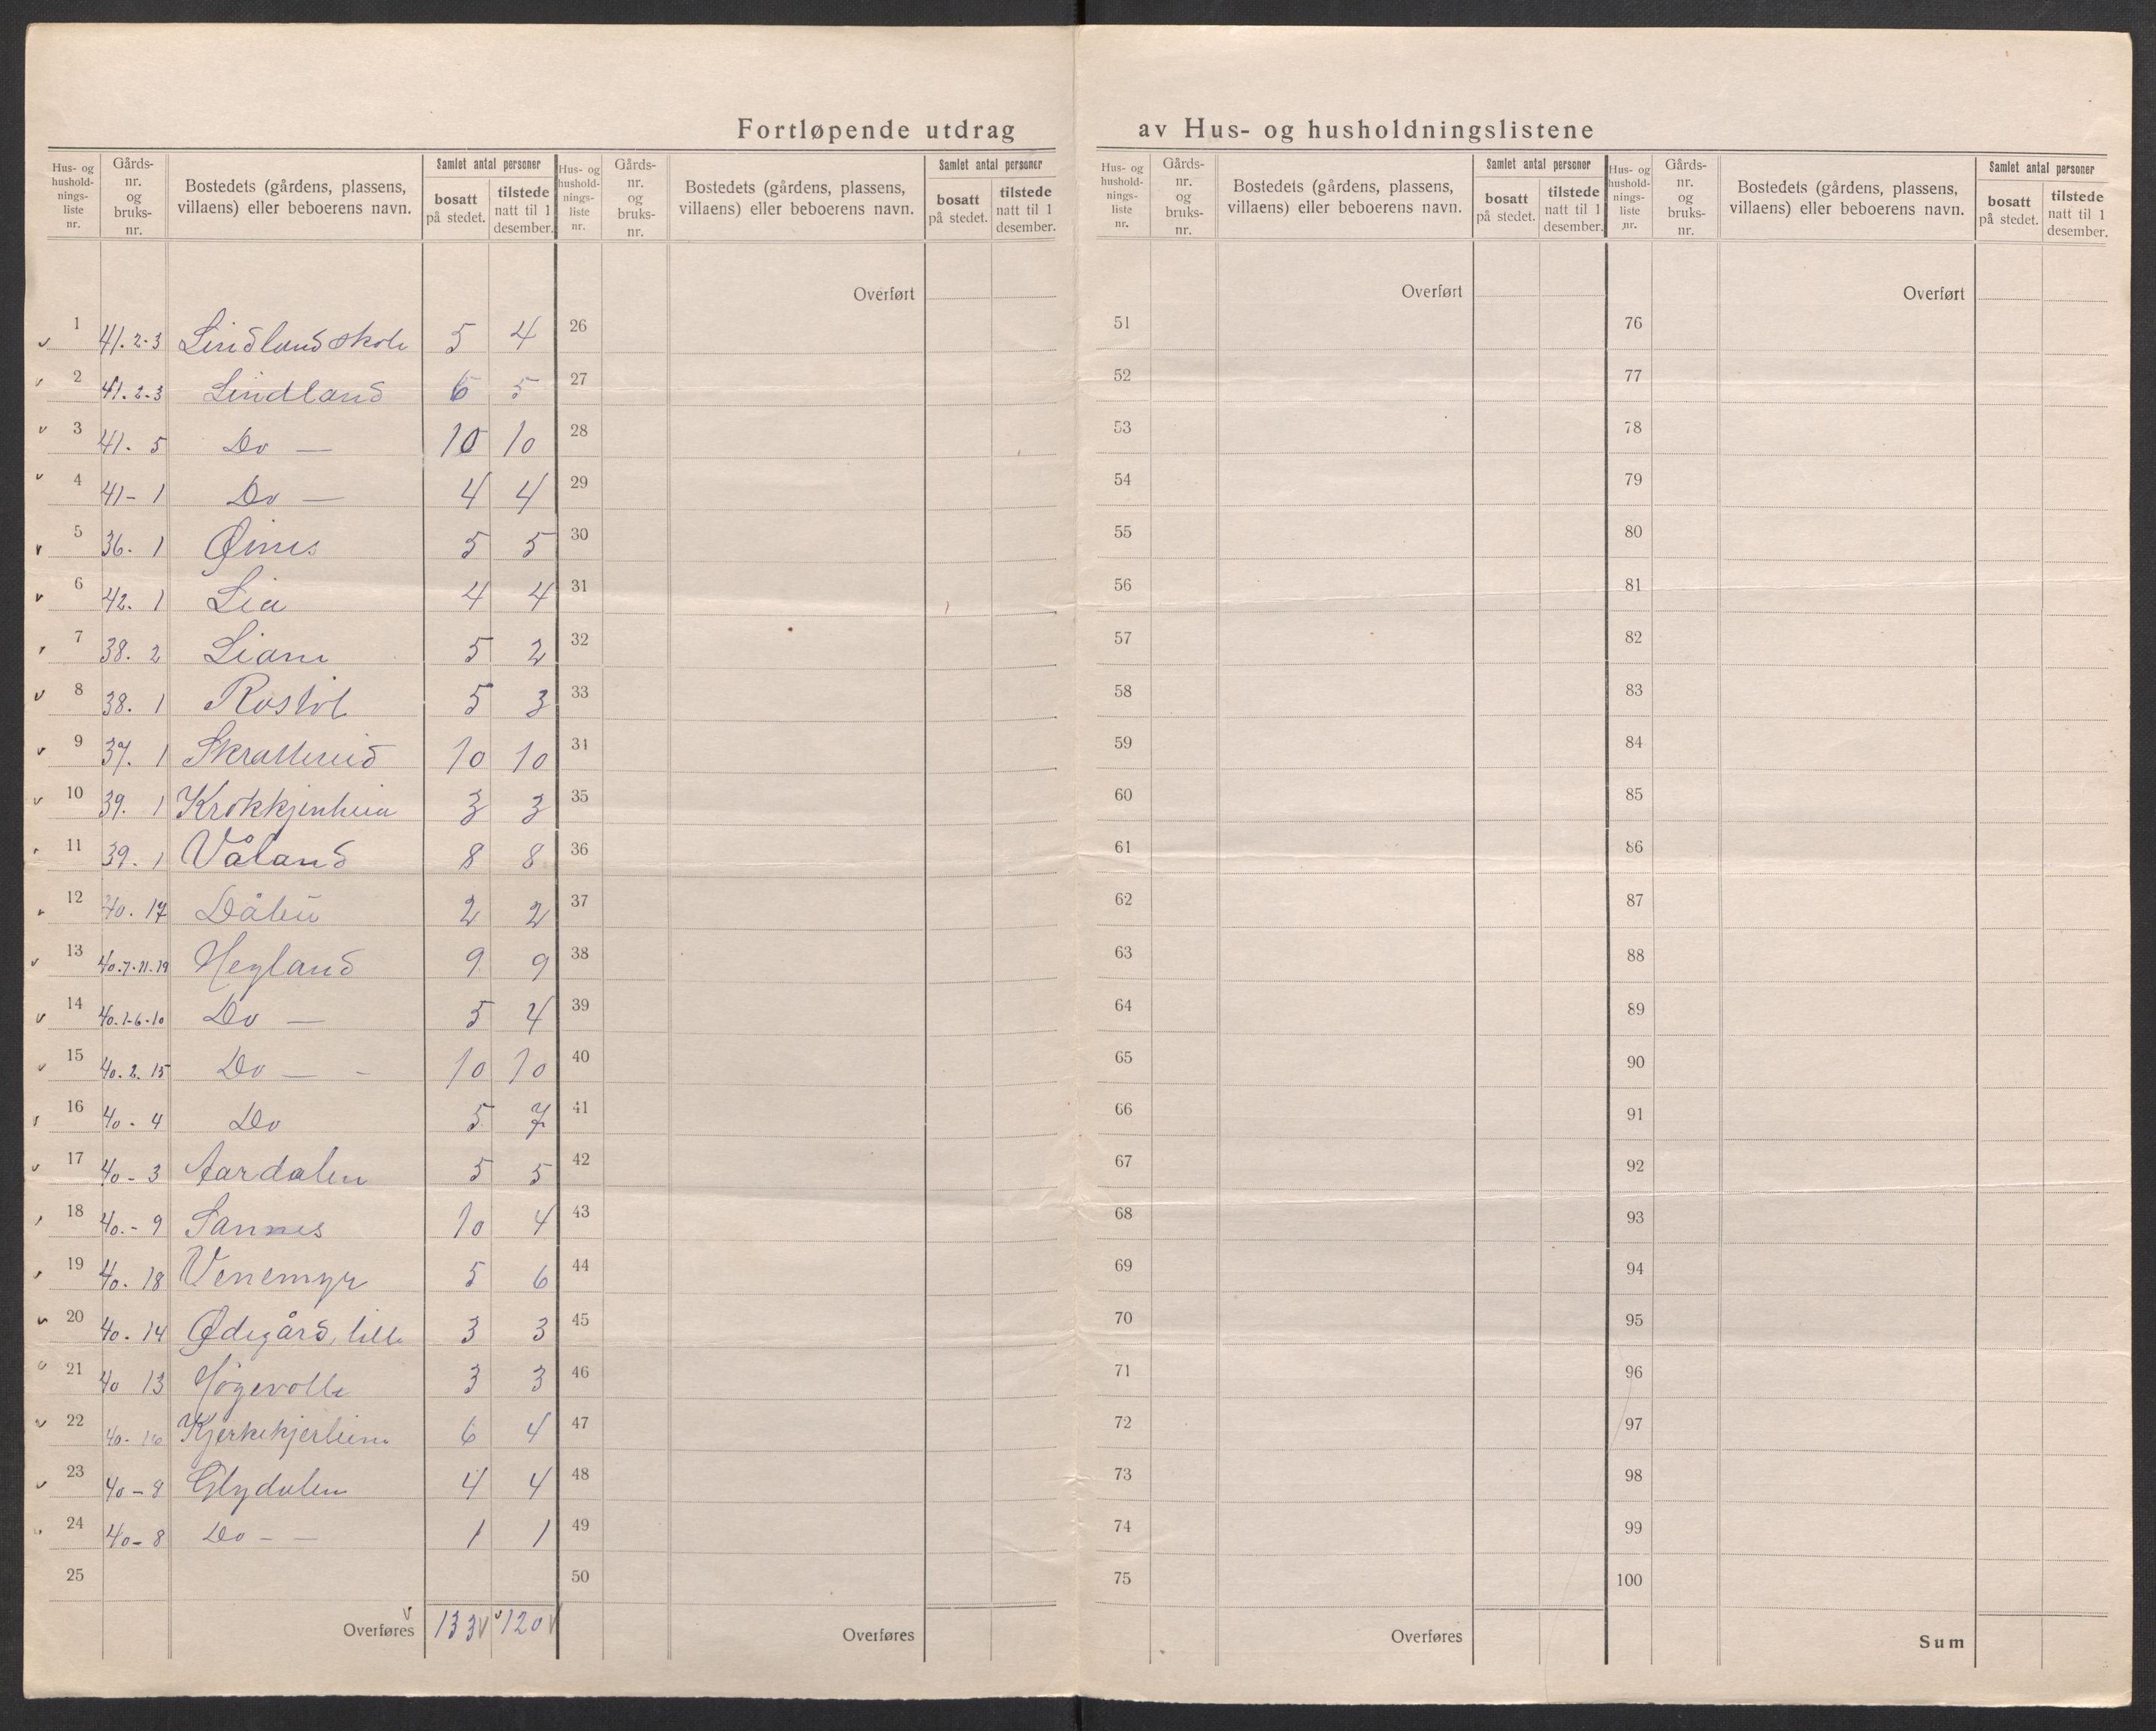 Fortløpende utdrag av Hus- og husholdningslistene
Hus- og hushold- nings- liste nr. | Gårds- nr. og bruks- nr. | Bostedets (gårdens, plassens, villaens) eller beboerens navn. | Samlet antal personer bosatt på stedet. | tilstede natt til 1 desember.
Hus- og hushold- nings- liste nr. | Gårds- nr. og bruks- nr. | Bostedets (gårdens, plassens, villaens) eller beboerens navn. | Samlet antal personer bosatt på stedet. | tilstede natt til 1 desember.
Hus- og hushold- nings- liste nr. | Gårds- nr. og bruks- nr. | Bostedets (gårdens, plassens, villaens) eller beboerens navn. | Samlet antal personer bosatt på stedet. | tilstede natt til 1 desember.
Hus- og hushold- nings- liste nr. | Gårds- nr. og bruks- nr. | Bostedets (gårdens, plassens, villaens) eller beboerens navn. | Samlet antal personer bosatt på stedet. | tilstede natt til 1 desember.
Overført Overført Overført
1 41. 2-3 Lindland skole 5 4 26 51 76
2 41. 2-3 Lindland 6 5 27 52 77
3 41. 5 Do — 10 10 28 53 78
4 41- 1 Do — 4 4 29 54 79
5 36. 1 Øines 5 5 30 55 80
6 42. 1 Lia 4 4 31 56 81
7 38. 2 Liane 5 2 32 57 82
8 38. 1 Rostøl 5 3 33 58 83
9 37. 1 Skratlereid 10 10 34 59 84
10 39. 1 Krokkjenheia 3 3 35 60 85
11 39. 1 Våland 8 8 36 61 86
12 40. 17 Dålen 2 2 37 62 87
13 40.7.11.19 Hegland 9 9 38 63 88
14 40.1-6-10 Do — 5 4 39 64 89
15 40. 2. 15 Do — - 10 10 40 65 90
16 40 - 4 Do 5 7 41 66 91
17 40 - 3 Aardalen 5 5 42 67 92
18 40. - 9 Sannes 10 4 43 68 93
19 40. 18 Venemyr 5 6 44 69 94
20 40. 14 Ødegård, lille 3 3 45 70 95
21 40 13 Høgevolle 3 3 46 71 96
22 40- 16 6 4 47 72 97
23 40 - 8 Glydalen 4 4 48 73 98
24 40- 8 Do - - 1 1 49 74 99
25 50 75 100
Overføres 133 120 Overføres Overføres Sum